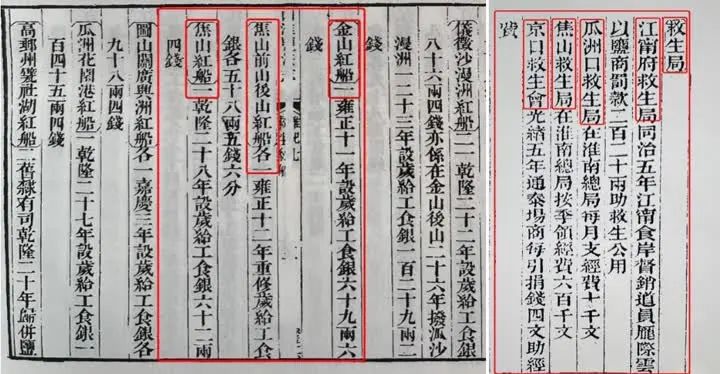 儀徵沙漫洲紅船二乾隆二十二年設歲給工食銀
八十六兩四錢亦係在金山後山二十六年撥瓜沙
漫洲一二十三年設歲給工食銀一百二十九兩
錢
金山紅船一雍正十一年設歲給工食銀六十九兩六
錢
焦山前山後山紅船各一雍正十二年重修歲給工食
銀各五十八兩五錢六分
焦山紅船一乾隆二十八年設歲給工食銀六十二兩
四錢
圌山關廣興洲紅船各一嘉慶三年設歲給工食銀各
九十八兩四錢
瓜洲花園港紅船一乾隆二十七年設歲給工食銀一
百四十五兩四錢
高郵州甓社湖紅船二舊隸有司乾隆二十年歸併鹽
救生局
江甯府救生局同治五年江甯食岸督銷道員龐際雲
以鹽商罰款二百二十兩助救生公用
瓜洲口救生局在淮南總局每月支經費七千文
焦山救生局在淮南總局按季領經費六百千文
京口救生會光緒五年通泰場商每引捐錢四文助經
費